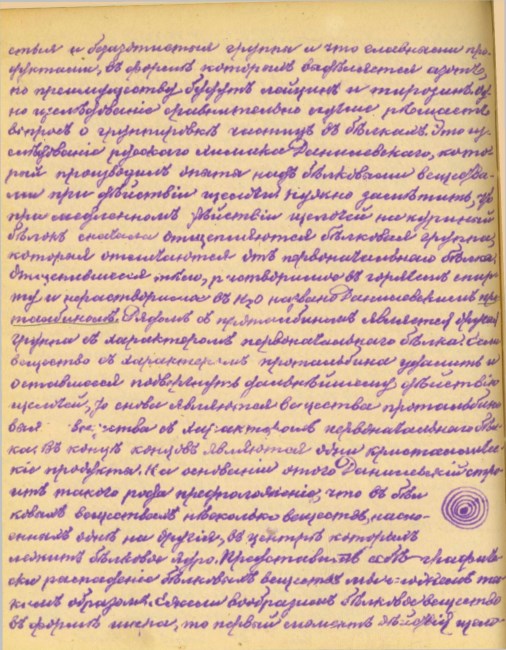 стыя и безазотистыя группы и что главными про-
дуктами, въ форме которых выделяется азотъ,
по преимуществу будут лейцин и тирозин. Од-
но изследованіе сравнительно лучше решаетъ
вопрос о группировке частиц в белкахъ. Это из-
следованіе русского химика Данилевского, кото-
рый производил опыты надъ белковыми вещества-
ми при действіи щелочей. Нужно заметить, что
при медленном действіи щелочей на куриный
белокъ сначала отщепляются белковыя группы,
которыя отличаются отъ первоначального белка.
Отщепившееся тело, растворимо въ горячем спир-
ту и нерастворимо въ H₂O названо Данилевским про-
тальбином. Рядом съ протальбином является другая
группа съ характером первоначального белка. Если
вещество съ характером протальбина удалить и
оставшееся подвергнуть дальнейшему действію
щелочей, то снова являются вещества протальбино-
выя вещества съ характером первоначального бел-
ка. Въ конце концовъ являются одни кристалличес-
кіе продукты. На основаніи этого Данилевскій стро-
ит такого рода предположеніе, что въ бел-
ковых веществах несколько веществ, насло-
енных одне на другія, въ центре которых
лежит белковое ядро. Представить себе графиче-
ски распаденіе белковых веществ мы можем та-
ким образом. Если вообразим белковое вещество
въ форме шара, то первый момент действія щело-